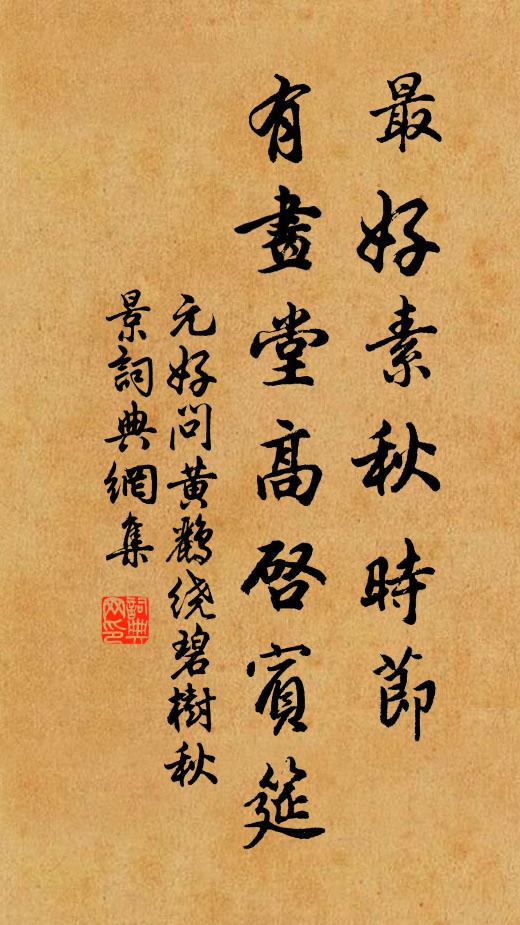 最好素秋時節
有畫堂高啓賓筵
元好問黃鶴绕碧樹秋
景詞典網集
詞典
网印